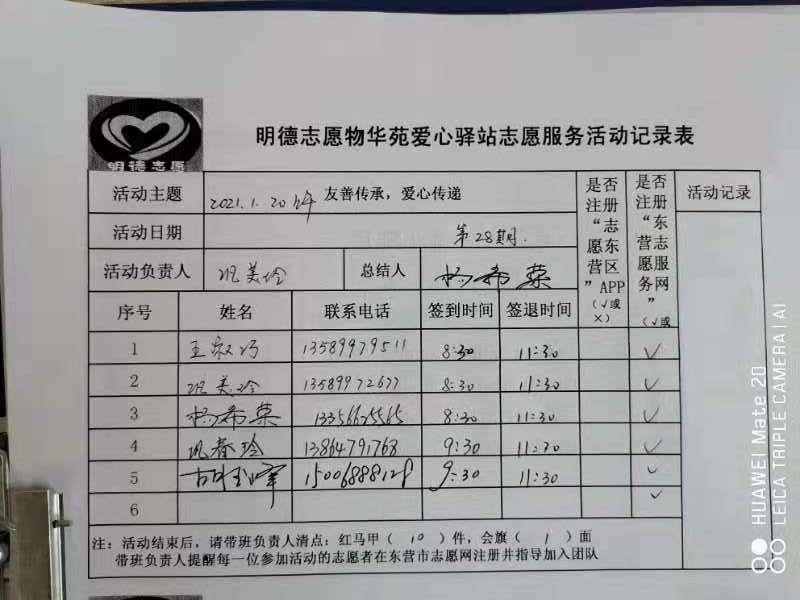 明德志愿
明德志愿物华苑爱心驿站志愿服务活动记录表
活动主题 2021.1.20 友善传承，爱心传递
是否注册“志愿东营区”APP（√或×）
是否注册“东营志愿服务网”（√或
活动记录
活动日期 第28期.
活动负责人 巩美玲 总结人 杨希荣
序号 姓名 联系电话 签到时间 签退时间
1 王淑巧 13589979511 8:30 11:30 √
2 巩美玲 13589972677 8:30 11:30 √
3 杨希荣 13356625565 8:30 11:30 √
4 巩春玲 13864791768 9:30 11:30 √
5 胡玉峰 15006888128 9:30 11:30 √
6 √
注：活动结束后，请带班负责人清点：红马甲（10）件，会旗（1）面
带班负责人提醒每一位参加活动的志愿者在东营市志愿网注册并指导加入团队
HUAWEI Mate 20
LEICA TRIPLE CAMERA | AI